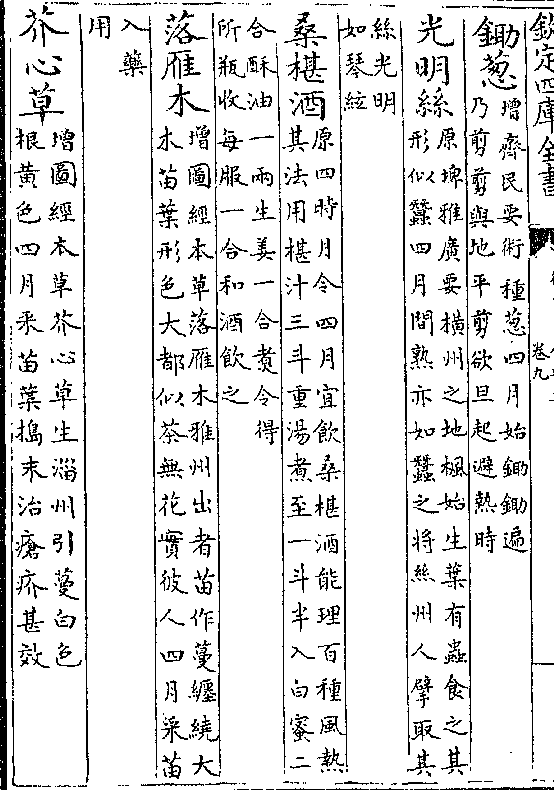 欽定四庫全書
卷九
鋤葱
增齊民要術種葱四月始鋤鋤遍
乃剪剪與地平剪欲旦起避熱時
光明絲
原埤雅廣要橫州之地楓始生葉有蟲食之其
形似蠶四月間熟亦如蠶之將絲州人擘取其
絲光明
如琴絃
桑椹酒
原四時月令四月宜飲桑椹酒能理百種風熱
其法用椹汁三斗重湯煮至一斗半入白蜜二
合酥油一兩生姜一合煑令得
所瓶收每服一合和酒飲之
落雁木
增圖經本草落雁木雅州出者苗作蔓纏繞大
木苗葉形色大都似茶無花實彼人四月采苗
入藥
用
芥心草
增圖經本草芥心草生淄州引蔓白色
根黃色四月采苗葉搗末治瘡疥甚效